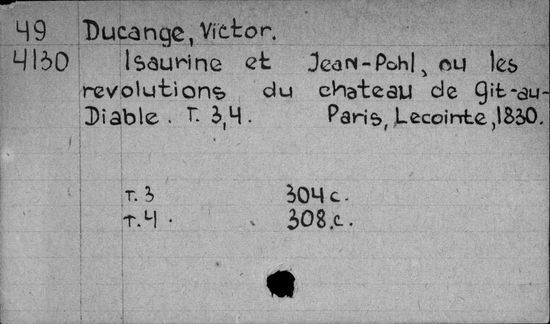 49 Ducange, Victor.
4130 Isaurine et Jean-Pohl, ou les
revolutions du chateau de Git-au-
Diable. T. 3,4. Paris, Lecointe, 1830.
T. 3 304 c.
T. 4. 308.c.